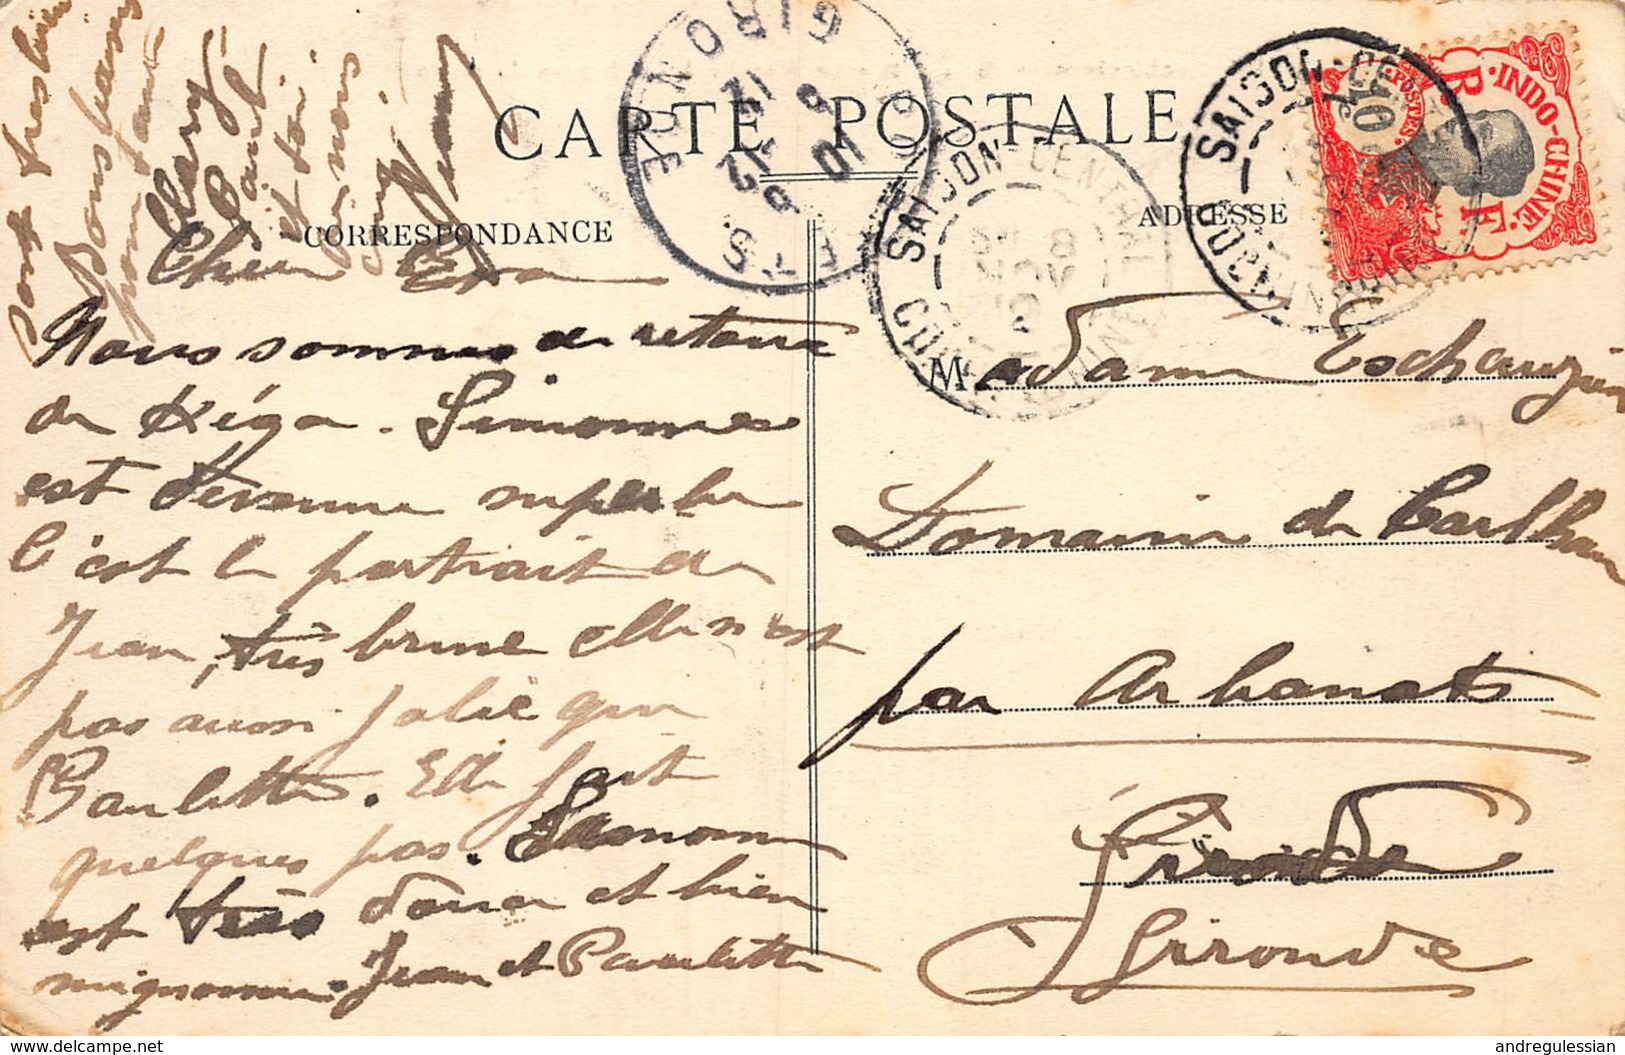 CARTE POSTALE
CORRESPONDANCE
ADRESSE
INDO-CHINE
R F
POSTES
10
SAIGON-CENTRAL
COCHINCHINE
SAIGON-CENTRAL
COCHINCHINE
8
NOV
GIRONDE
10
12
Nous sommes de retour
de Kéga. Simonne
est devenue superbe
C'est le portrait de
Jean, très brune elle n'est
pas aussi jolie que
Paulette. Elle fait
quelques pas. Simonne
est très douce et bien
mignonne. Jean et Paulette
sont très bien
Madame Eschauzier
Domaine de Carlhau
par Arbanats
Gironde
Gironde
www.delcampe.net
andregulessian